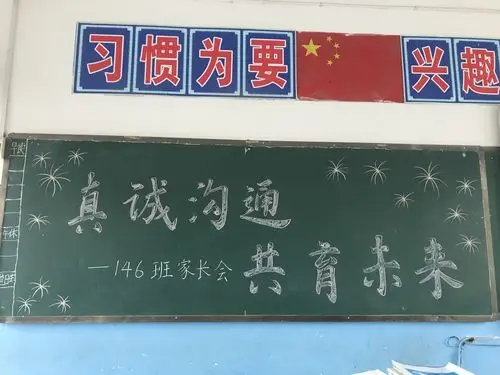 习惯为要 兴趣
真诚沟通
共育未来
—146班家长会
早读
午休